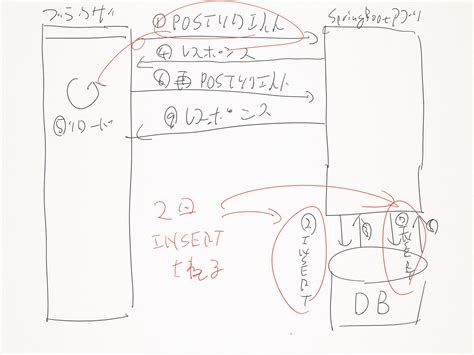 ブラウザ
SpringBootアプリ
①POSTリクエスト
④レスポンス
⑥再POSTリクエスト
⑨レスポンス
⑤リロード
2回
INSERT
②INSERT
⑦INSERT
③
⑧
DB